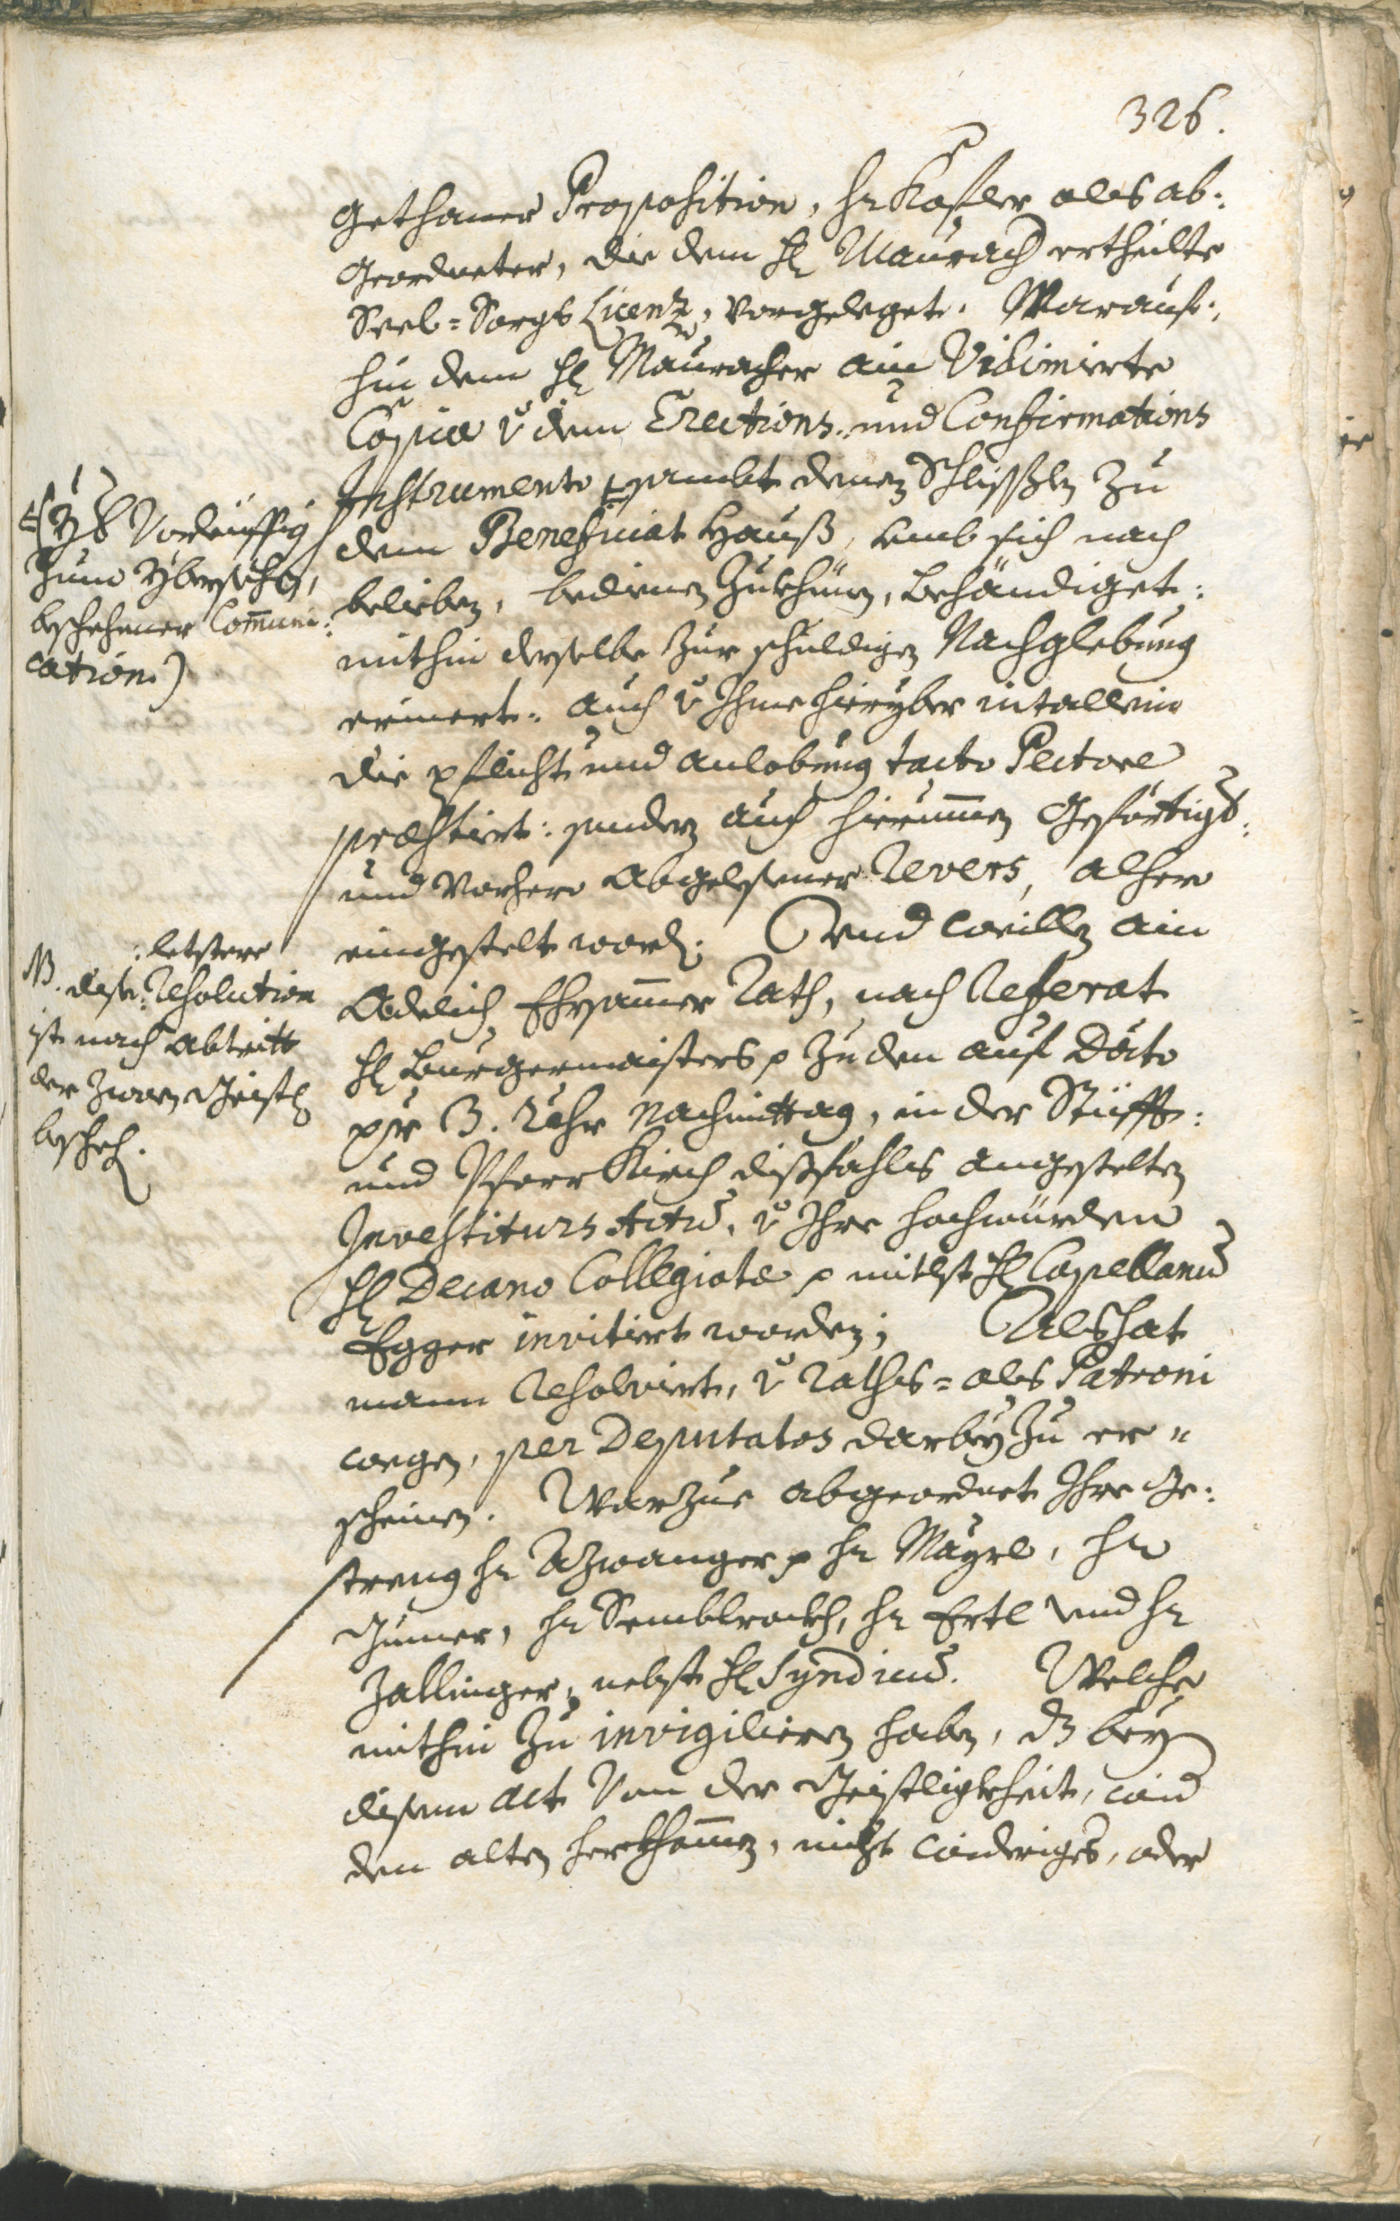 326.
gethaner Proposition, H: Kofler als ab-
geordneter, die dem H: Maurach ertheilte
Seel=Sorgs Licenz, vorgeleget. Warauf-
hin dem H: Mauracher ain Vidimirte
Copia v: dem Erections- und Confirmations
Instrumento sambt denen Schlisslen zu
dem Beneficiat Hauß, umb sich nach
belieben, bedienen zukhünen, behändiget:
mithin derselbe zur schuldigen Nachglebung
erinert: auch v: Ihme hieryber nit allein
die pflicht und anlobung tacto Pectore
præstiert: sondern auch hierumen gefertigt-
und vorhero abgelesener Revers, alhero
eingestelt word: Und weillen ain
Adelich Ehrsamer Rath, nach Referat
H: Burgermaisters p zu den auf Dato
pr 3. Uhr nachmittag, in der Stüfft-
und Pfarrkirch dißfahls angestelten
Investiturs Actus, v: Ihre hochwürden
H: Decano Collegiatæ p mitlst H: Capellanus
Egger invitiert worden; Als hat
mann Resolviert, v: Raths= als Patroni
wegen, per Deputatos darbey zu er=
scheinen. Warzue abgeordnet Ihre Ge-
streng H: Azwanger p H: Mayrl, H:
Gumer, H: Semblrockh, H: Ertl und H:
Zallinger, nebst H: Syndicus. Welche
mithin zu invigilieren haben, dz bey
disem Act von der Geistligkheit, wid
den alten herkhomen, nicht widriges, oder
(yb vorleiffig
zum yberfluß,
beschehener Communi-
cation.)
: letstere
NB. dise: Resolution
ist nach abtritt
der zwoen Geistl:
bescheh: